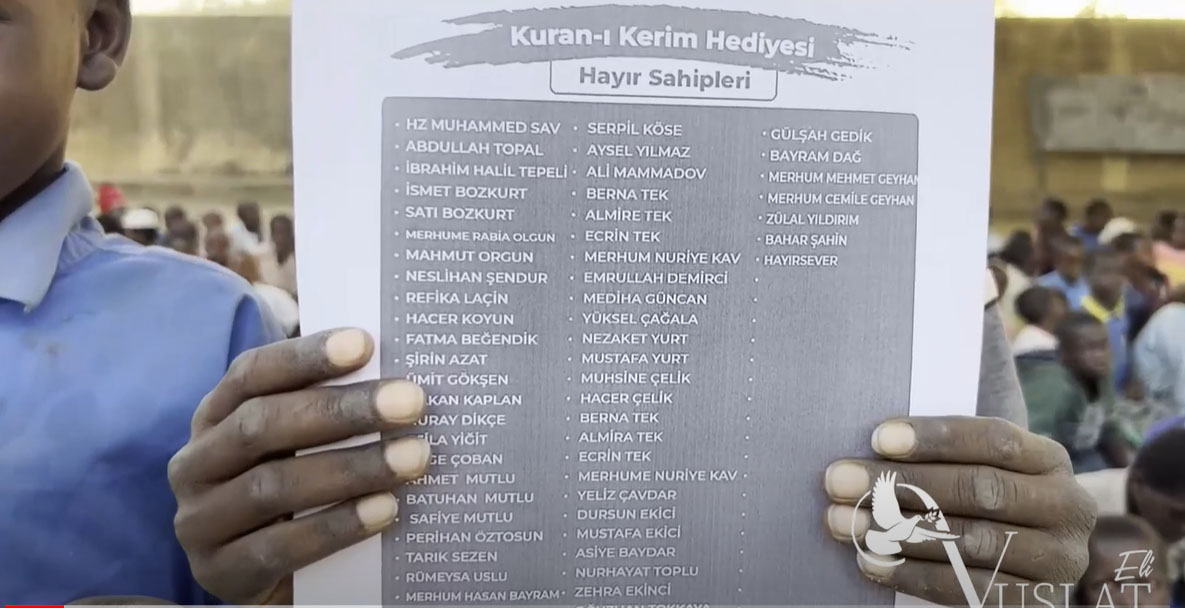 Kuran-ı Kerim Hediyesi
Hayır Sahipleri
• HZ MUHAMMED SAV
• ABDULLAH TOPAL
• İBRAHİM HALİL TEPELİ
• İSMET BOZKURT
• SATI BOZKURT
• MERHUME RABİA OLGUN
• MAHMUT ORGUN
• NESLİHAN ŞENDUR
• REFİKA LAÇİN
• HACER KOYUN
• FATMA BEĞENDİK
• ŞİRİN AZAT
ÜMİT GÖKŞEN
KAPLAN
DİKÇE
YİĞİT
ÇOBAN
AHMET MUTLU
• BATUHAN MUTLU
• SAFİYE MUTLU
• PERİHAN ÖZTOSUN
• TARIK SEZEN
• RÜMEYSA USLU
• MERHUM HASAN BAYRAM
• SERPİL KÖSE
• AYSEL YILMAZ
• ALİ MAMMADOV
• BERNA TEK
• ALMİRE TEK
• ECRİN TEK
• MERHUM NURİYE KAV
• EMRULLAH DEMİRCİ
• MEDİHA GÜNCAN
• YÜKSEL ÇAĞALA
• NEZAKET YURT
• MUSTAFA YURT
• MUHSİNE ÇELİK
• HACER ÇELİK
• BERNA TEK
• ALMİRA TEK
• ECRİN TEK
• MERHUME NURİYE KAV
• YELİZ ÇAVDAR
• DURSUN EKİCİ
• MUSTAFA EKİCİ
• ASİYE BAYDAR
• NURHAYAT TOPLU
• ZEHRA EKİNCİ
• GÜLŞAH GEDİK
• BAYRAM DAĞ
• MERHUM MEHMET GEYHAN
• MERHUM CEMİLE GEYHAN
• ZÜLAL YILDIRIM
• BAHAR ŞAHİN
• HAYIRSEVER
VUSLAT Eli